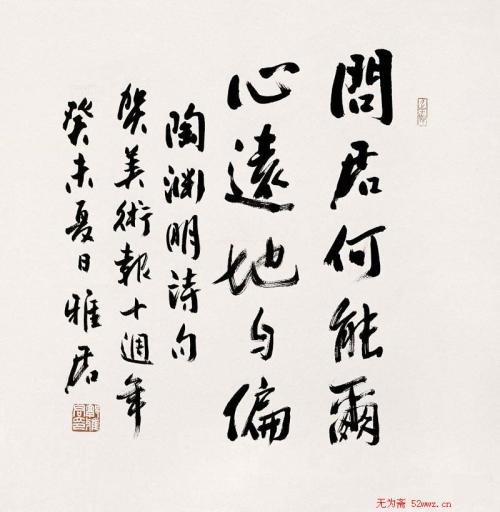 問君何能爾
心遠地与偏
陶渊明詩句
賀美術報十週年
癸未夏日雅君
无为斋 52wwz.cn